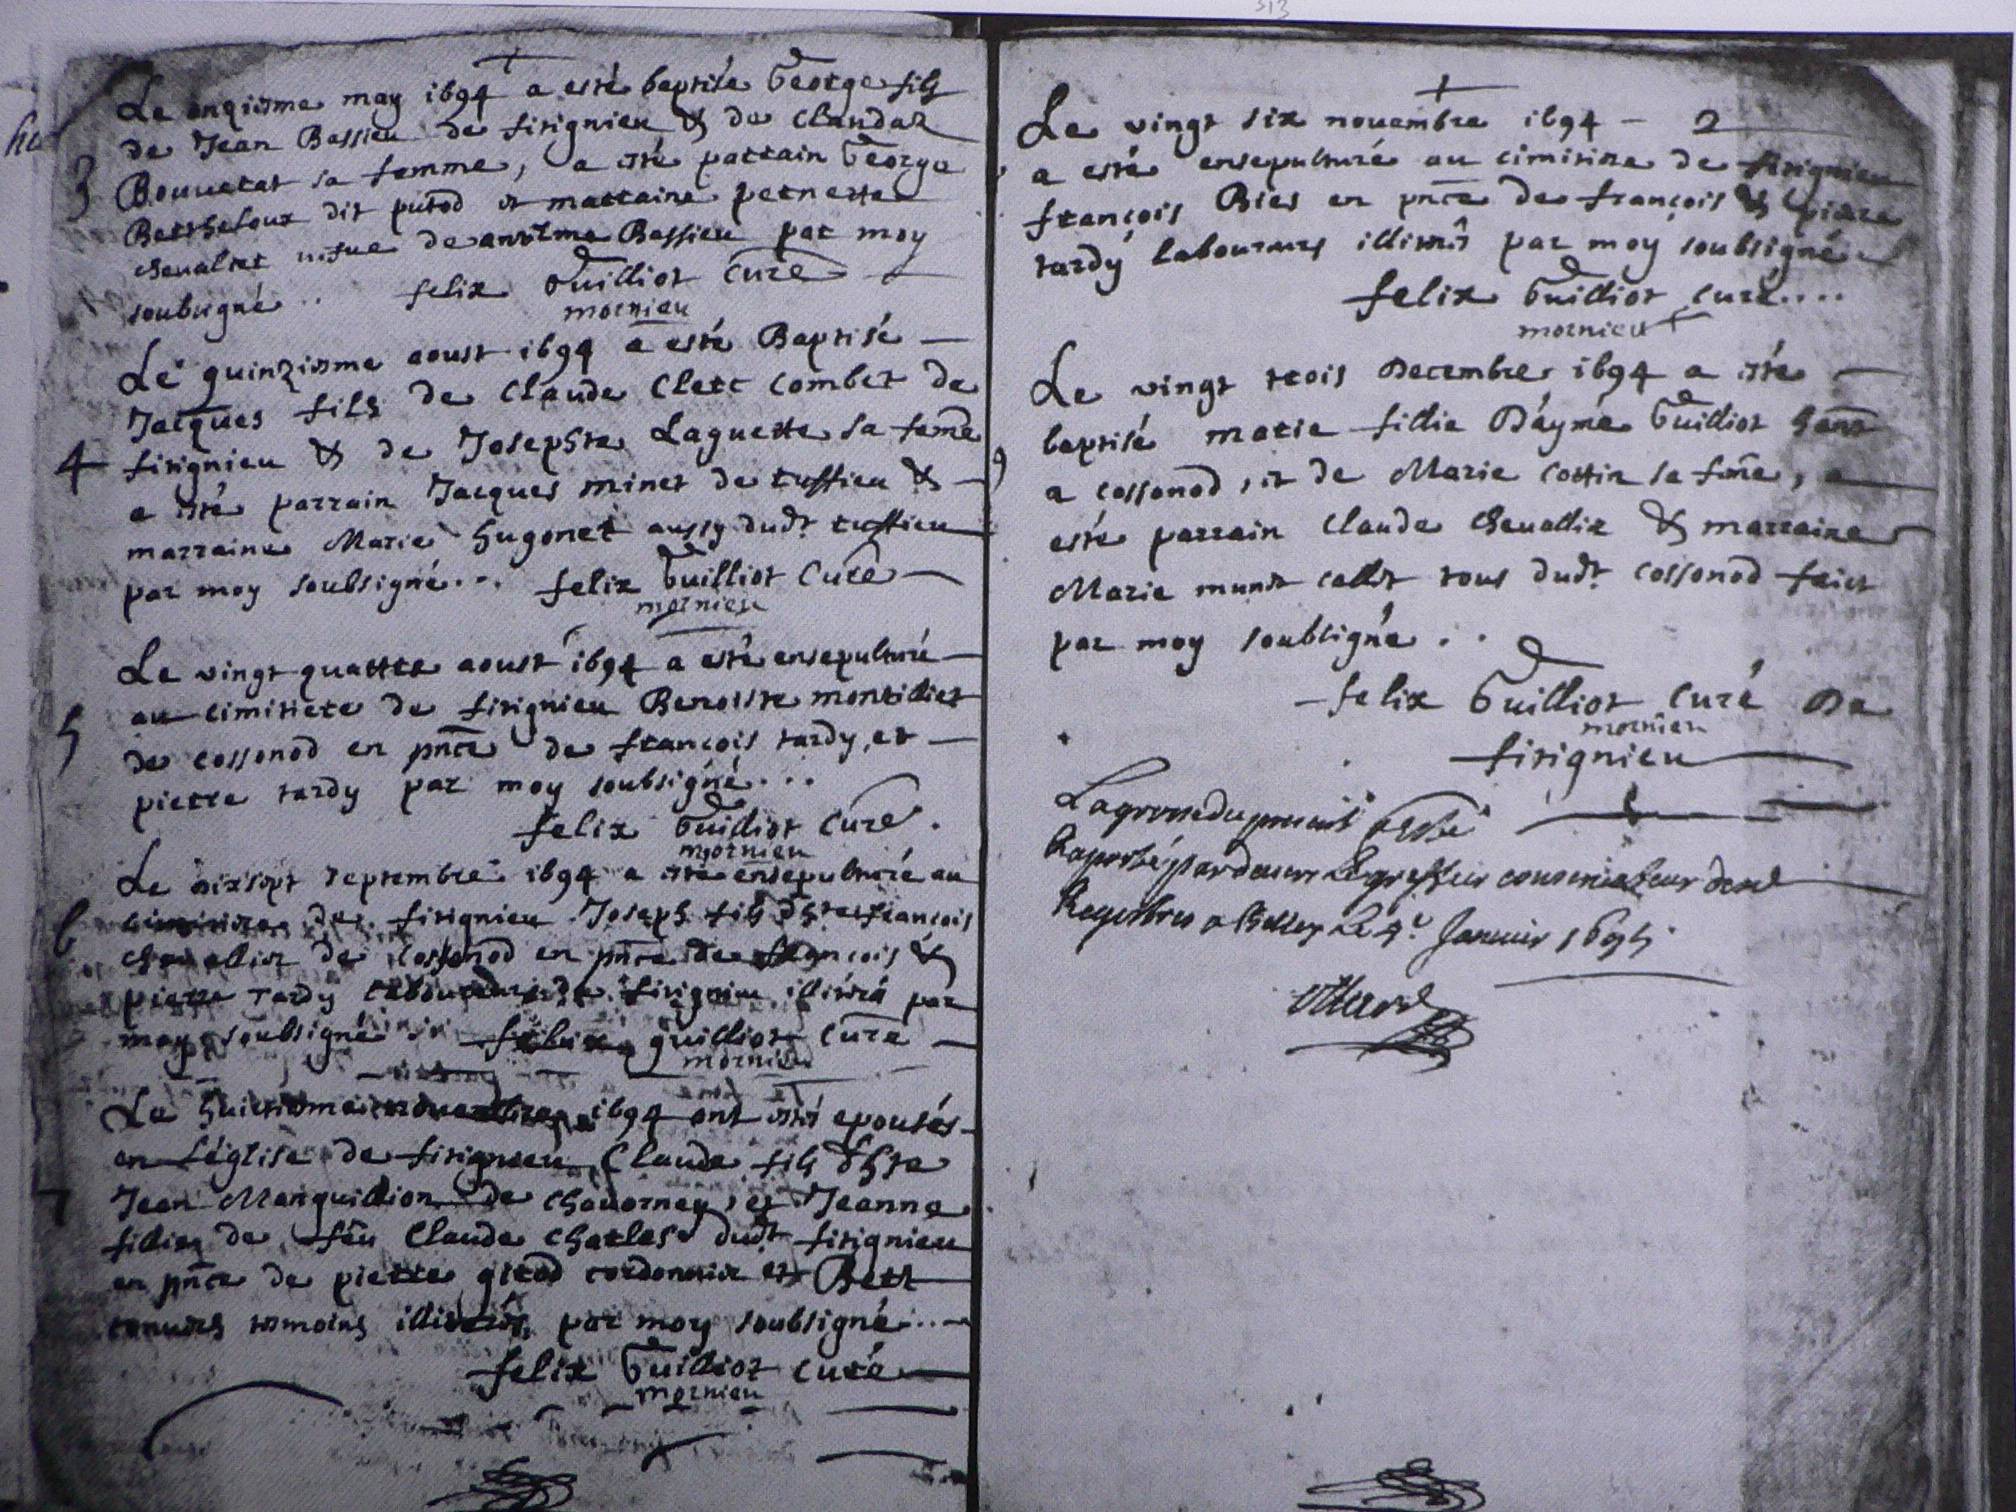 313
Le onziesme may 1694 a esté baptisée George fils
de Jean Bassieu de firignieu & de Claudaz
3 Bouuetat sa femme, a esté parrain George
Bertheloux dit putod et marraine pernette
cheualier uefue de anselme Bassieu par moy
soubsigné .. felix Guilliot Curé
mornieu
Le quinziesme aoust 1694 a esté Baptisé
Jacques fils de Claude Clerc Combet de
4 firignieu & de Josephte Laguette sa feme
a esté parrain Jacques minet de cuffieu &
marraine Marie hugonet aussy dudt cuffieu
par moy soubsigné... felix Guilliot Curé
mornieu
Le vingt quattre aoust 1694 a esté ensepulturé
au cimitiere de firignieu Benoiste montillet
5 de cossonod en pnce de françois tardy, et
pierre tardy par moy soubsigné...
felix Guilliot Curé.
mornieu
Le dixsept septembre 1694 a esté ensepulturé au
6 cimitiere de firignieu Joseph fils d'hte françois
cheuallier de cossonod en pnce de françois &
pierre Tardy laboureurs de firignieu illiteré par
moy soubsigné felix guilliot Curé
mornieu
Le huictiesme nouembre 1694 ont esté epousés
en l'église de firignieu Claude fils d'hte
7 Jean Manquillion de chauornay, et Jeanne
fillie de feu Claude Charles dudt firignieu
en pnce de pierre girod cordonnier et Bert
temoins illiterés, par moy soubsigné...
felix Guilliot curé
mornieu
Le vingt six nouembre 1694 - 2
a esté ensepulturé au cimitiere de firignieu
françois Bies en pnce de françois & pierre
tardy laboureurs illiterés par moy soubsigné
felix Guilliot curé....
mornieu
Le vingt trois Decembre 1694 a esté
baptisé marie fillie D'aymé Guilliot hant
a cossonod, et de Marie Cottin sa fme, a
esté parrain Claude Cheuallier & marraine
Marie munet callet tous dudt cossonod faict
par moy soubsigné ..
felix Guilliot Curé De
mornieu
firignieu
La grosse du present a esté
Raporté pardeuers Le greffier conseruateur desd
Registres a Belley Le 4e Januier 1695